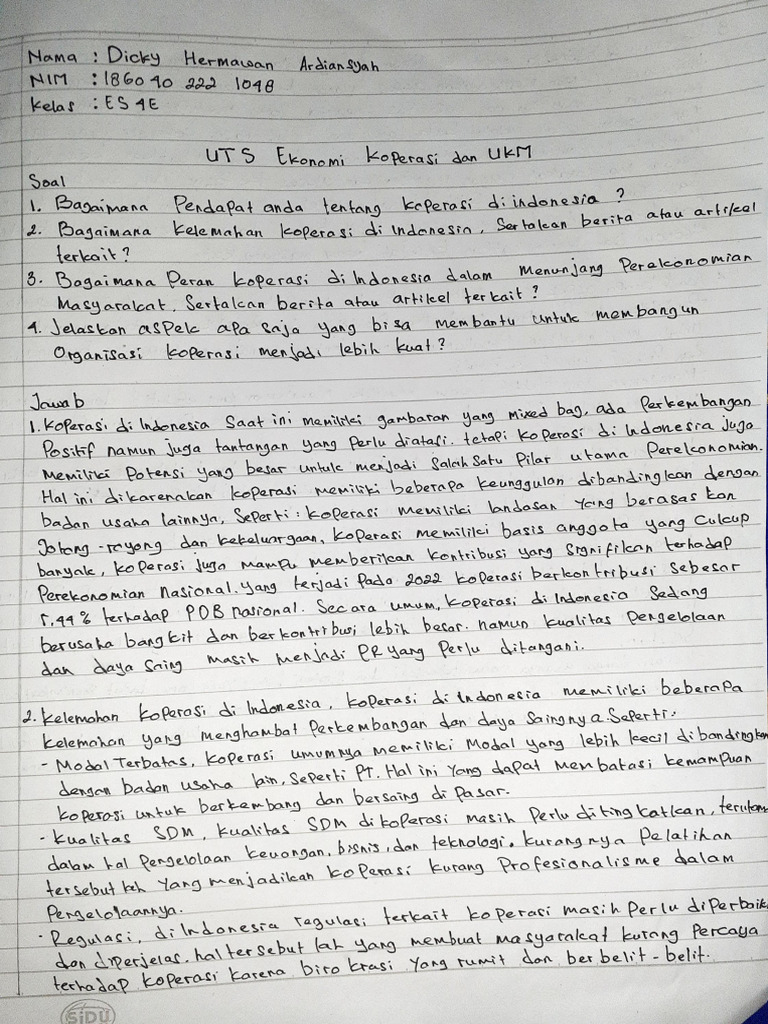 Nama : Dicky Hermawan Ardiansyah
NIM : 18604022221048
Kelas : ES 4E
UTS Ekonomi Koperasi dan UKM
Soal
1. Bagaimana Pendapat anda tentang koperasi di indonesia ?
2. Bagaimana kelemahan koperasi di Indonesia, Sertakan berita atau artikel
terkait ?
3. Bagaimana Peran koperasi di Indonesia dalam Menunjang Perekonomian
Masyarakat, Sertakan berita atau artikel terkait ?
4. Jelaskan aspek apa saja yang bisa membantu untuk membangun
Organisasi koperasi menjadi lebih kuat ?
Jawab
1. Koperasi di Indonesia Saat ini memiliki gambaran yang mixed bag, ada Perkembangan
Positif namun juga tantangan yang Perlu diatasi. tetapi koperasi di Indonesia juga
Memiliki Potensi yang besar untuk menjadi Salah Satu Pilar utama Perekonomian.
Hal ini dikarenakan koperasi memiliki beberapa keunggulan dibandingkan dengan
badan usaha lainnya, Seperti : koperasi memiliki landasan yang berasaskan
gotong-royong dan kekeluargaan, koperasi memiliki basis anggota yang Cukup
banyak, koperasi juga mampu memberikan kontribusi yang signifikan terhadap
Perekonomian Nasional. Yang terjadi Pada 2022 koperasi berkontribusi sebesar
5,44% terhadap PDB nasional. Secara umum, koperasi di Indonesia Sedang
berusaha bangkit dan berkontribusi lebih besar. namun kualitas Pengelolaan
dan daya Saing masih menjadi PR yang Perlu ditangani.
2. Kelemahan koperasi di Indonesia, koperasi di Indonesia memiliki beberapa
kelemahan yang menghambat Perkembangan dan daya Saingnya. Seperti :
- Modal Terbatas, koperasi umumnya memiliki Modal yang lebih kecil dibandingkan
dengan badan usaha lain, Seperti PT. Hal ini Yang dapat Membatasi kemampuan
koperasi untuk berkembang dan bersaing di Pasar.
- Kualitas SDM, kualitas SDM dikoperasi masih Perlu ditingkatkan, terutama
dalam hal Pengelolaan keuangan, bisnis, dan teknologi. kurangnya Pelatihan
tersebut lah Yang menjadikan koperasi kurang Profesionalisme dalam
Pengelolaannya.
- Regulasi, di Indonesia regulasi terkait koperasi masih Perlu diperbaiki
dan diperjelas. hal tersebut lah yang membuat masyarakat kurang Percaya
terhadap koperasi karena birokrasi Yang rumit dan berbelit-belit.
SIDU